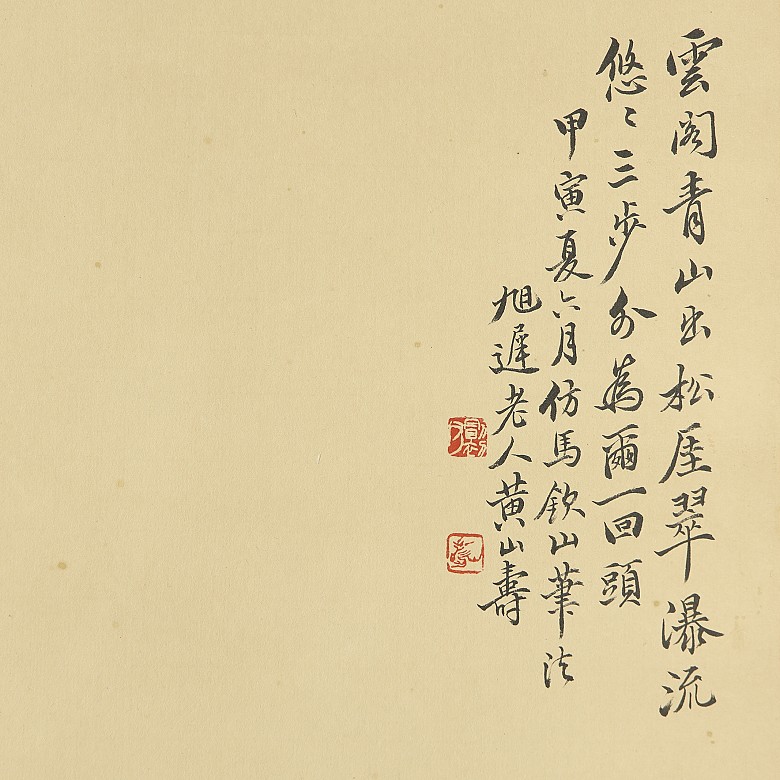 雲閣青山出松厓翠瀑流
悠〻三步外為爾一回頭
甲寅夏六月仿馬欽山筆法
旭遲老人黃山壽